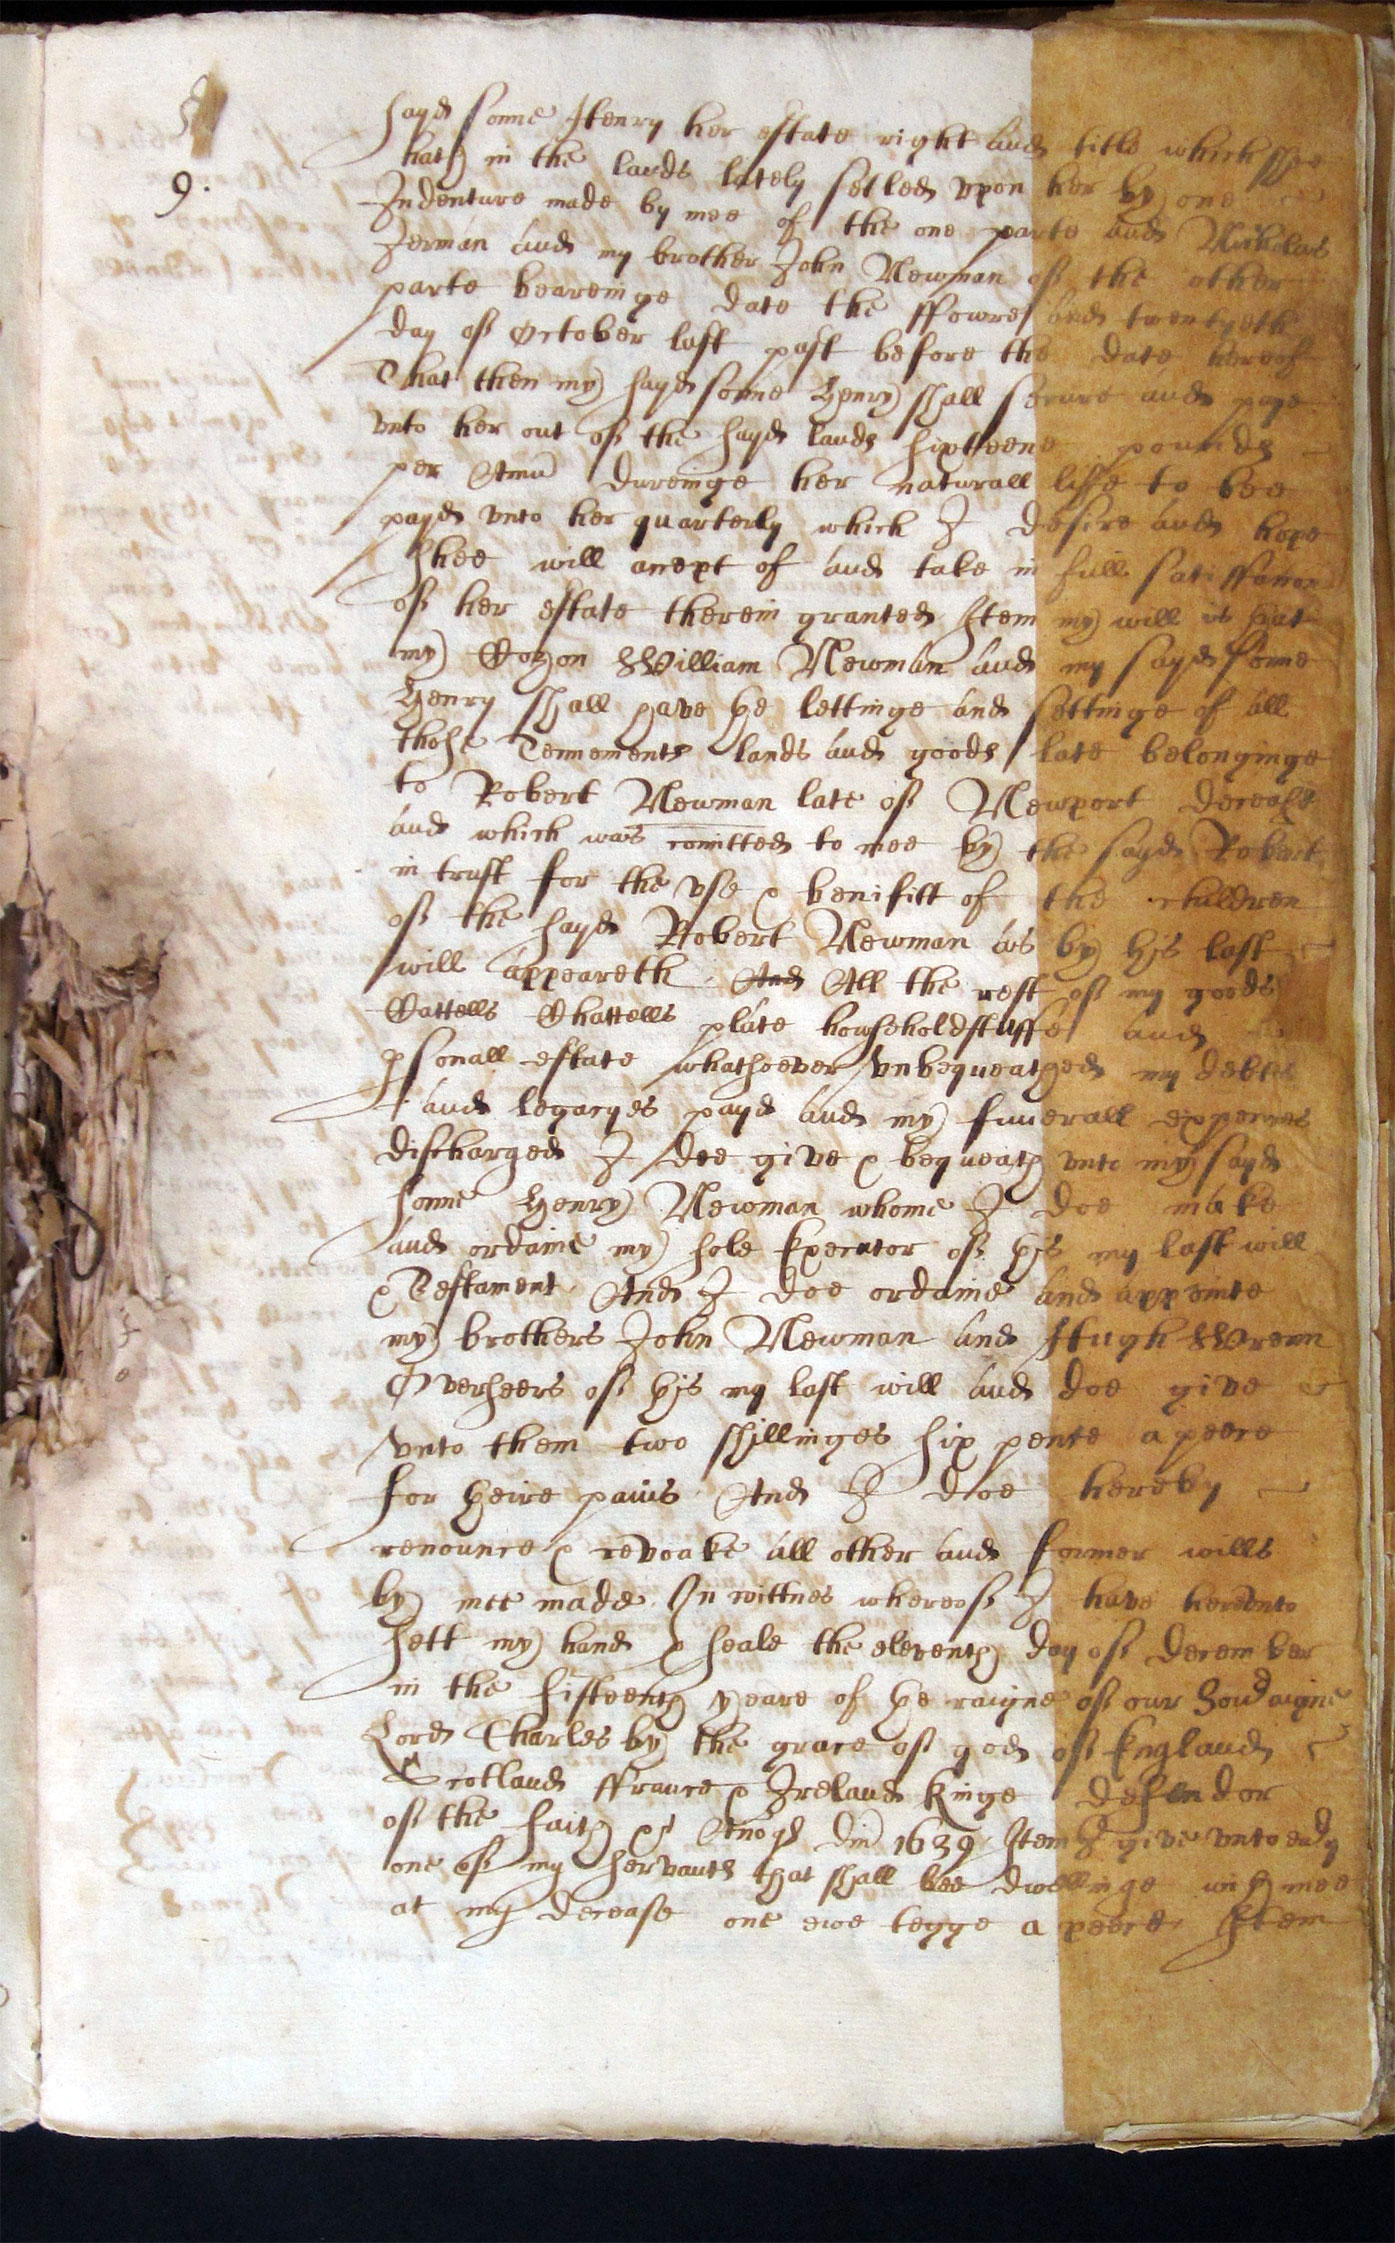 9.
sayd sonne Henry her estate right and title which shee
hath in the lands lately setled vpon her by one
Indenture made by mee of the one parte and Nicholas
Jerman and my brother John Newman of the other
parte beareinge date the ffowre and twentyeth
day of October last past before the date hereof
That then my sayd sonne Henry shall secure and paye
vnto her out of the sayd lands sixteene pounds
per Annu dureinge her naturall liffe to bee
payd vnto her quarterly which I desire and hope
shee will accept of and take in full satisffaccon
of her estate therein granted Item my will is that
my Cozon William Newman and my sayd sonne
Henry shall have the lettinge and settinge of all
those Tennements lands and goods late belonginge
to Robert Newman late of Newport deceast
and which was comitted to mee by the sayd Robert
in trust for the vse & benifitt of the children
of the sayd Robert Newman as by his last
will appeareth And All the rest of my goods
Cattells Chattells plate howseholdstuffe and
psonall estate whatsoever vnbequeathed my debts
and legacyes payd and my funerall expences
discharged I doe give & bequeath vnto my sayd
sonne Henry Newman whome I doe make
and ordaine my sole Executor of this my last will
& Testament And I doe ordaine and appointe
my brothers John Newman and Hugh Wrenn
Overseers of this my last will and doe give
vnto them two shillinges six pence a peece
for theire pains And I doe hereby
renounce & revoake all other and former wills
by mee made In wittnes whereof I have herevnto
sett my hand & seale the eleventh day of December
in the fifteenth yeare of the raigne of our Sovraigne
Lord Charles by the grace of god of England
Scotland ffrance & Ireland Kinge defendor
of the faith &c Anoqd dni 1639 Item I give vnto evdy
one of my servants that shall bee dwellinge with mee
at my decease one ewe tegge a peece Item